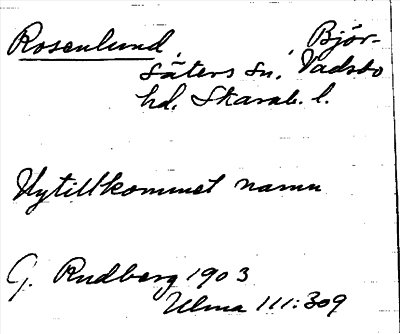 Rosenlund, Björ-
säters sn, Vadsbo
hd, Skarab. l.
Nytillkommet namn
G. Rudberg 1903
Ulma 111:309